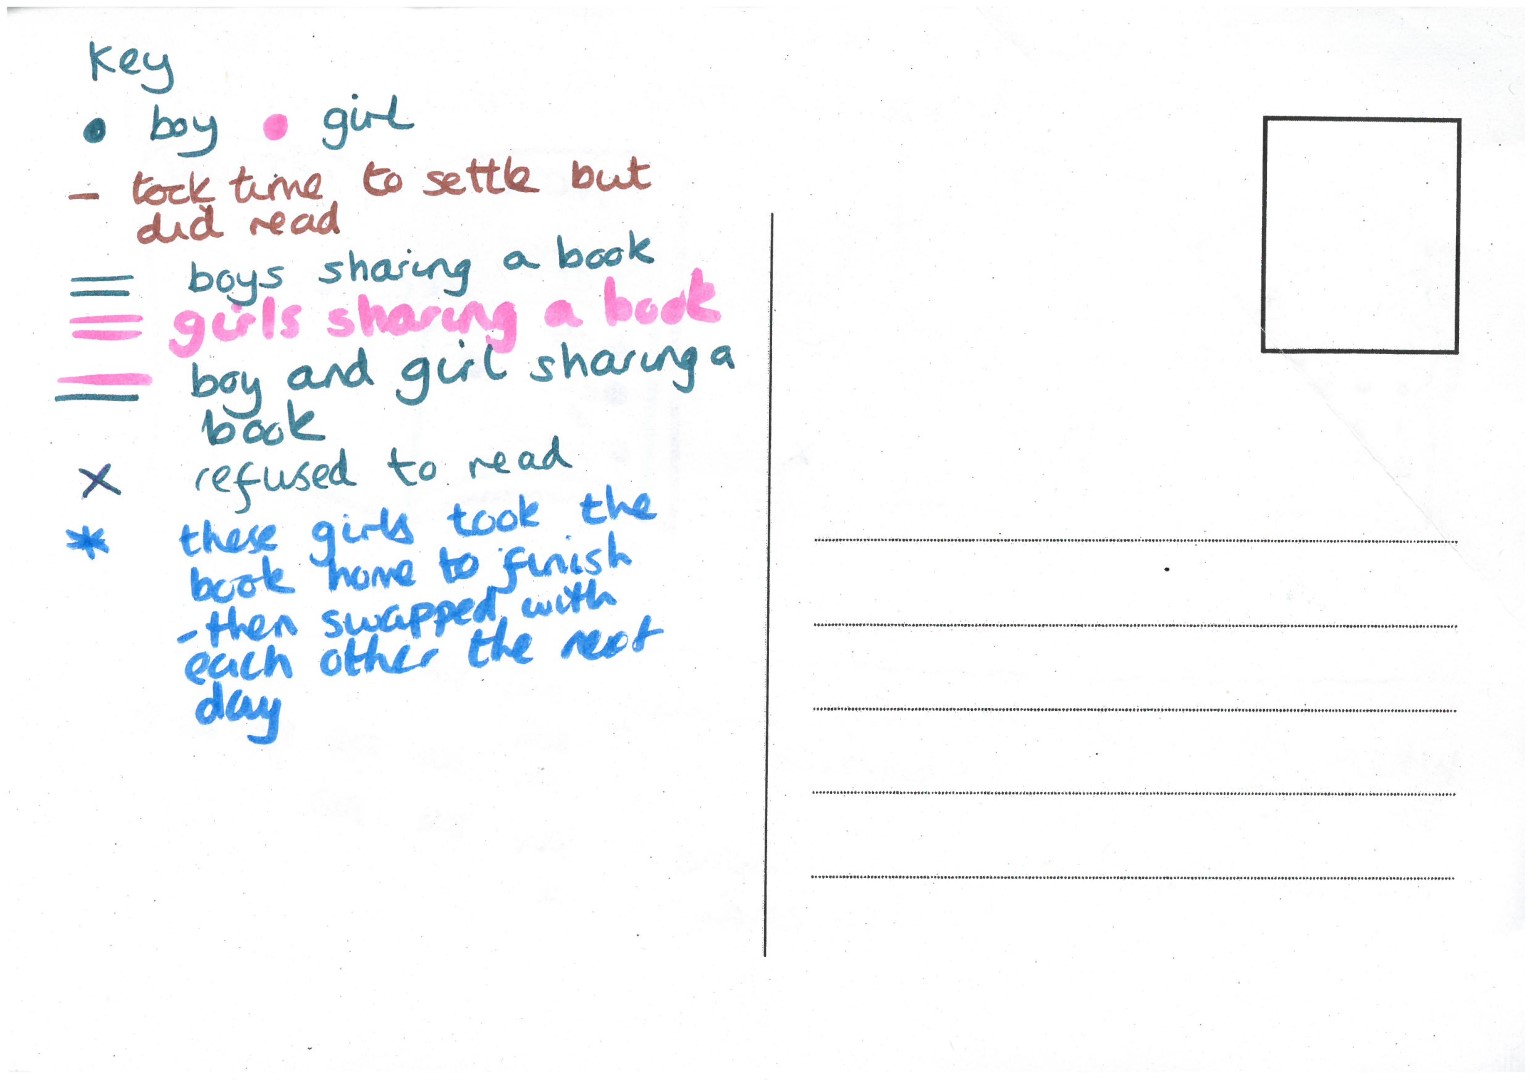 Key
• boy • girl
- took time to settle but
did read
boys sharing a book
girls sharing a book
boy and girl sharing a
book
x refused to read
* these girls took the
book home to finish
- then swapped with
each other the next
day